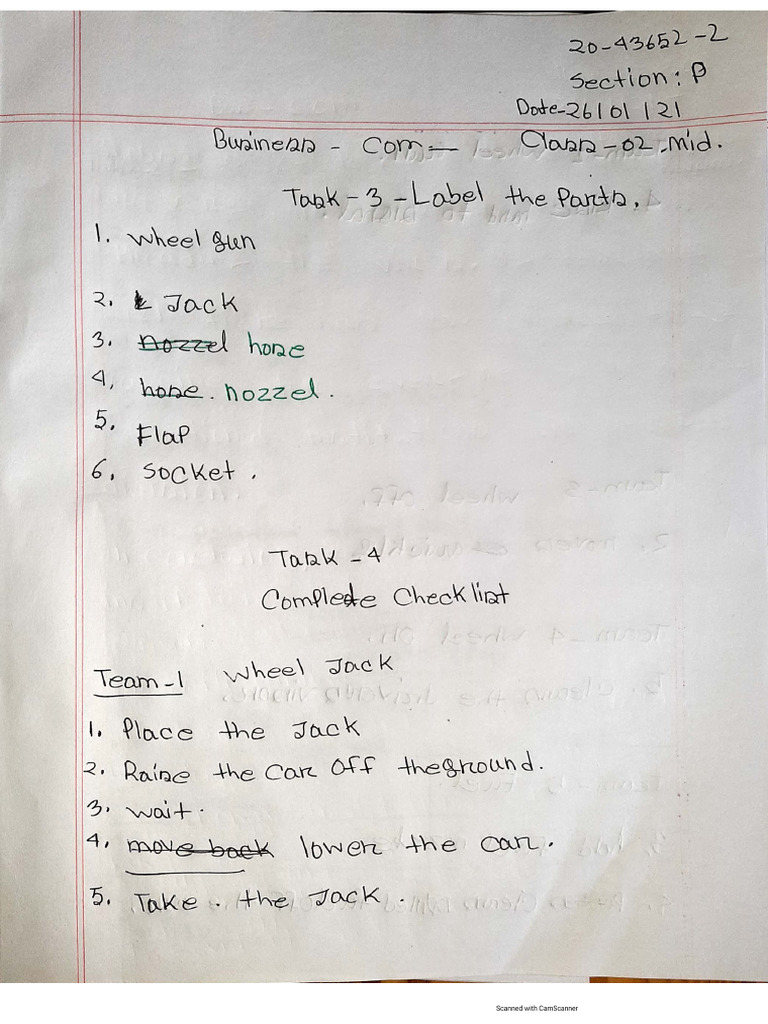 20-43652-2
Section: B
Date-26/01/21
Business - Com— Class-02-mid.
Task-3-Label the Parts.
1. wheel gun
2. Jack
3. nozzel hose
4. hose. nozzel.
5. Flap
6. Socket.
Task-4
Complete Checklist
Team-1 Wheel Jack
1. Place the Jack
2. Raise the car off the ground.
3. wait.
4. move back lower the car.
5. Take. the Jack.
Scanned with CamScanner